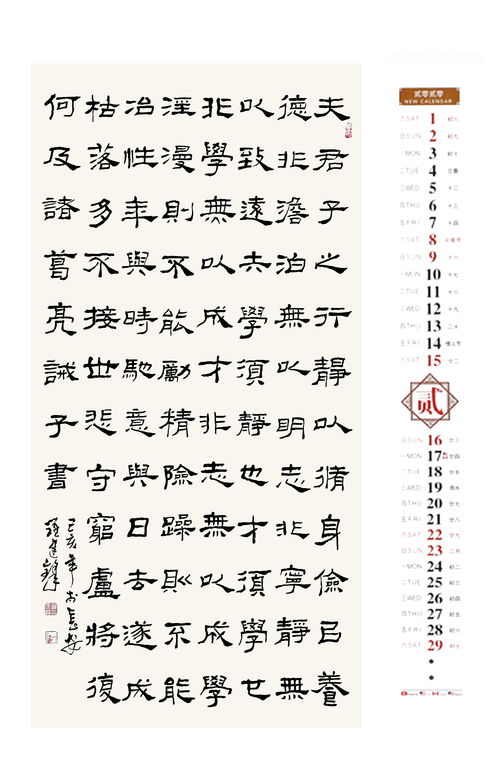 夫君子之行靜以脩身儉㠯養
德非澹泊無以明志非寧靜無
以致遠夫學須靜也才須學也
非學無以成才非志無以成學
淫漫則不能勵精險躁則不能
冶性年與時馳意與日去遂成
枯落多不接世悲守窮盧將復
何及諸葛亮誡子書
己亥年於長安
貳零貳零
NEW CALENDAR
六SAT 1 初八
日SUN 2 初九
一MON 3 初十
二TUE 4 立春
三WED 5 十二
四THU 6 十三
五FRI 7 十四
六SAT 8 元宵节
日SUN 9 十六
一MON 10 十七
二TUE 11 十八
三WED 12 十九
四THU 13 二十
五FRI 14 情人节
六SAT 15 廿二
贰
日SUN 16 廿三
一MON 17 廿四
二TUE 18 廿五
三WED 19 雨水
四THU 20 廿七
五FRI 21 廿八
六SAT 22 廿九
日SUN 23 二月
一MON 24 初二
二TUE 25 初三
三WED 26 初四
四THU 27 初五
五FRI 28 初六
六SAT 29 初七